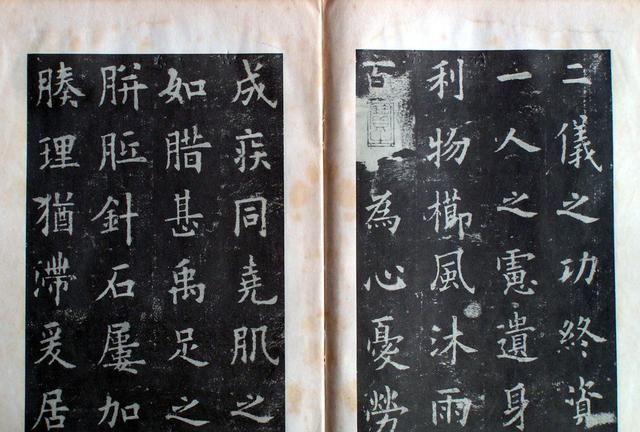 二儀之功終資
一人之慮遺身
利物櫛風沐雨
百為心憂勞
成疾同堯肌之
如腊甚禹足之
胼胝針石屢加
腠理猶滯爰居